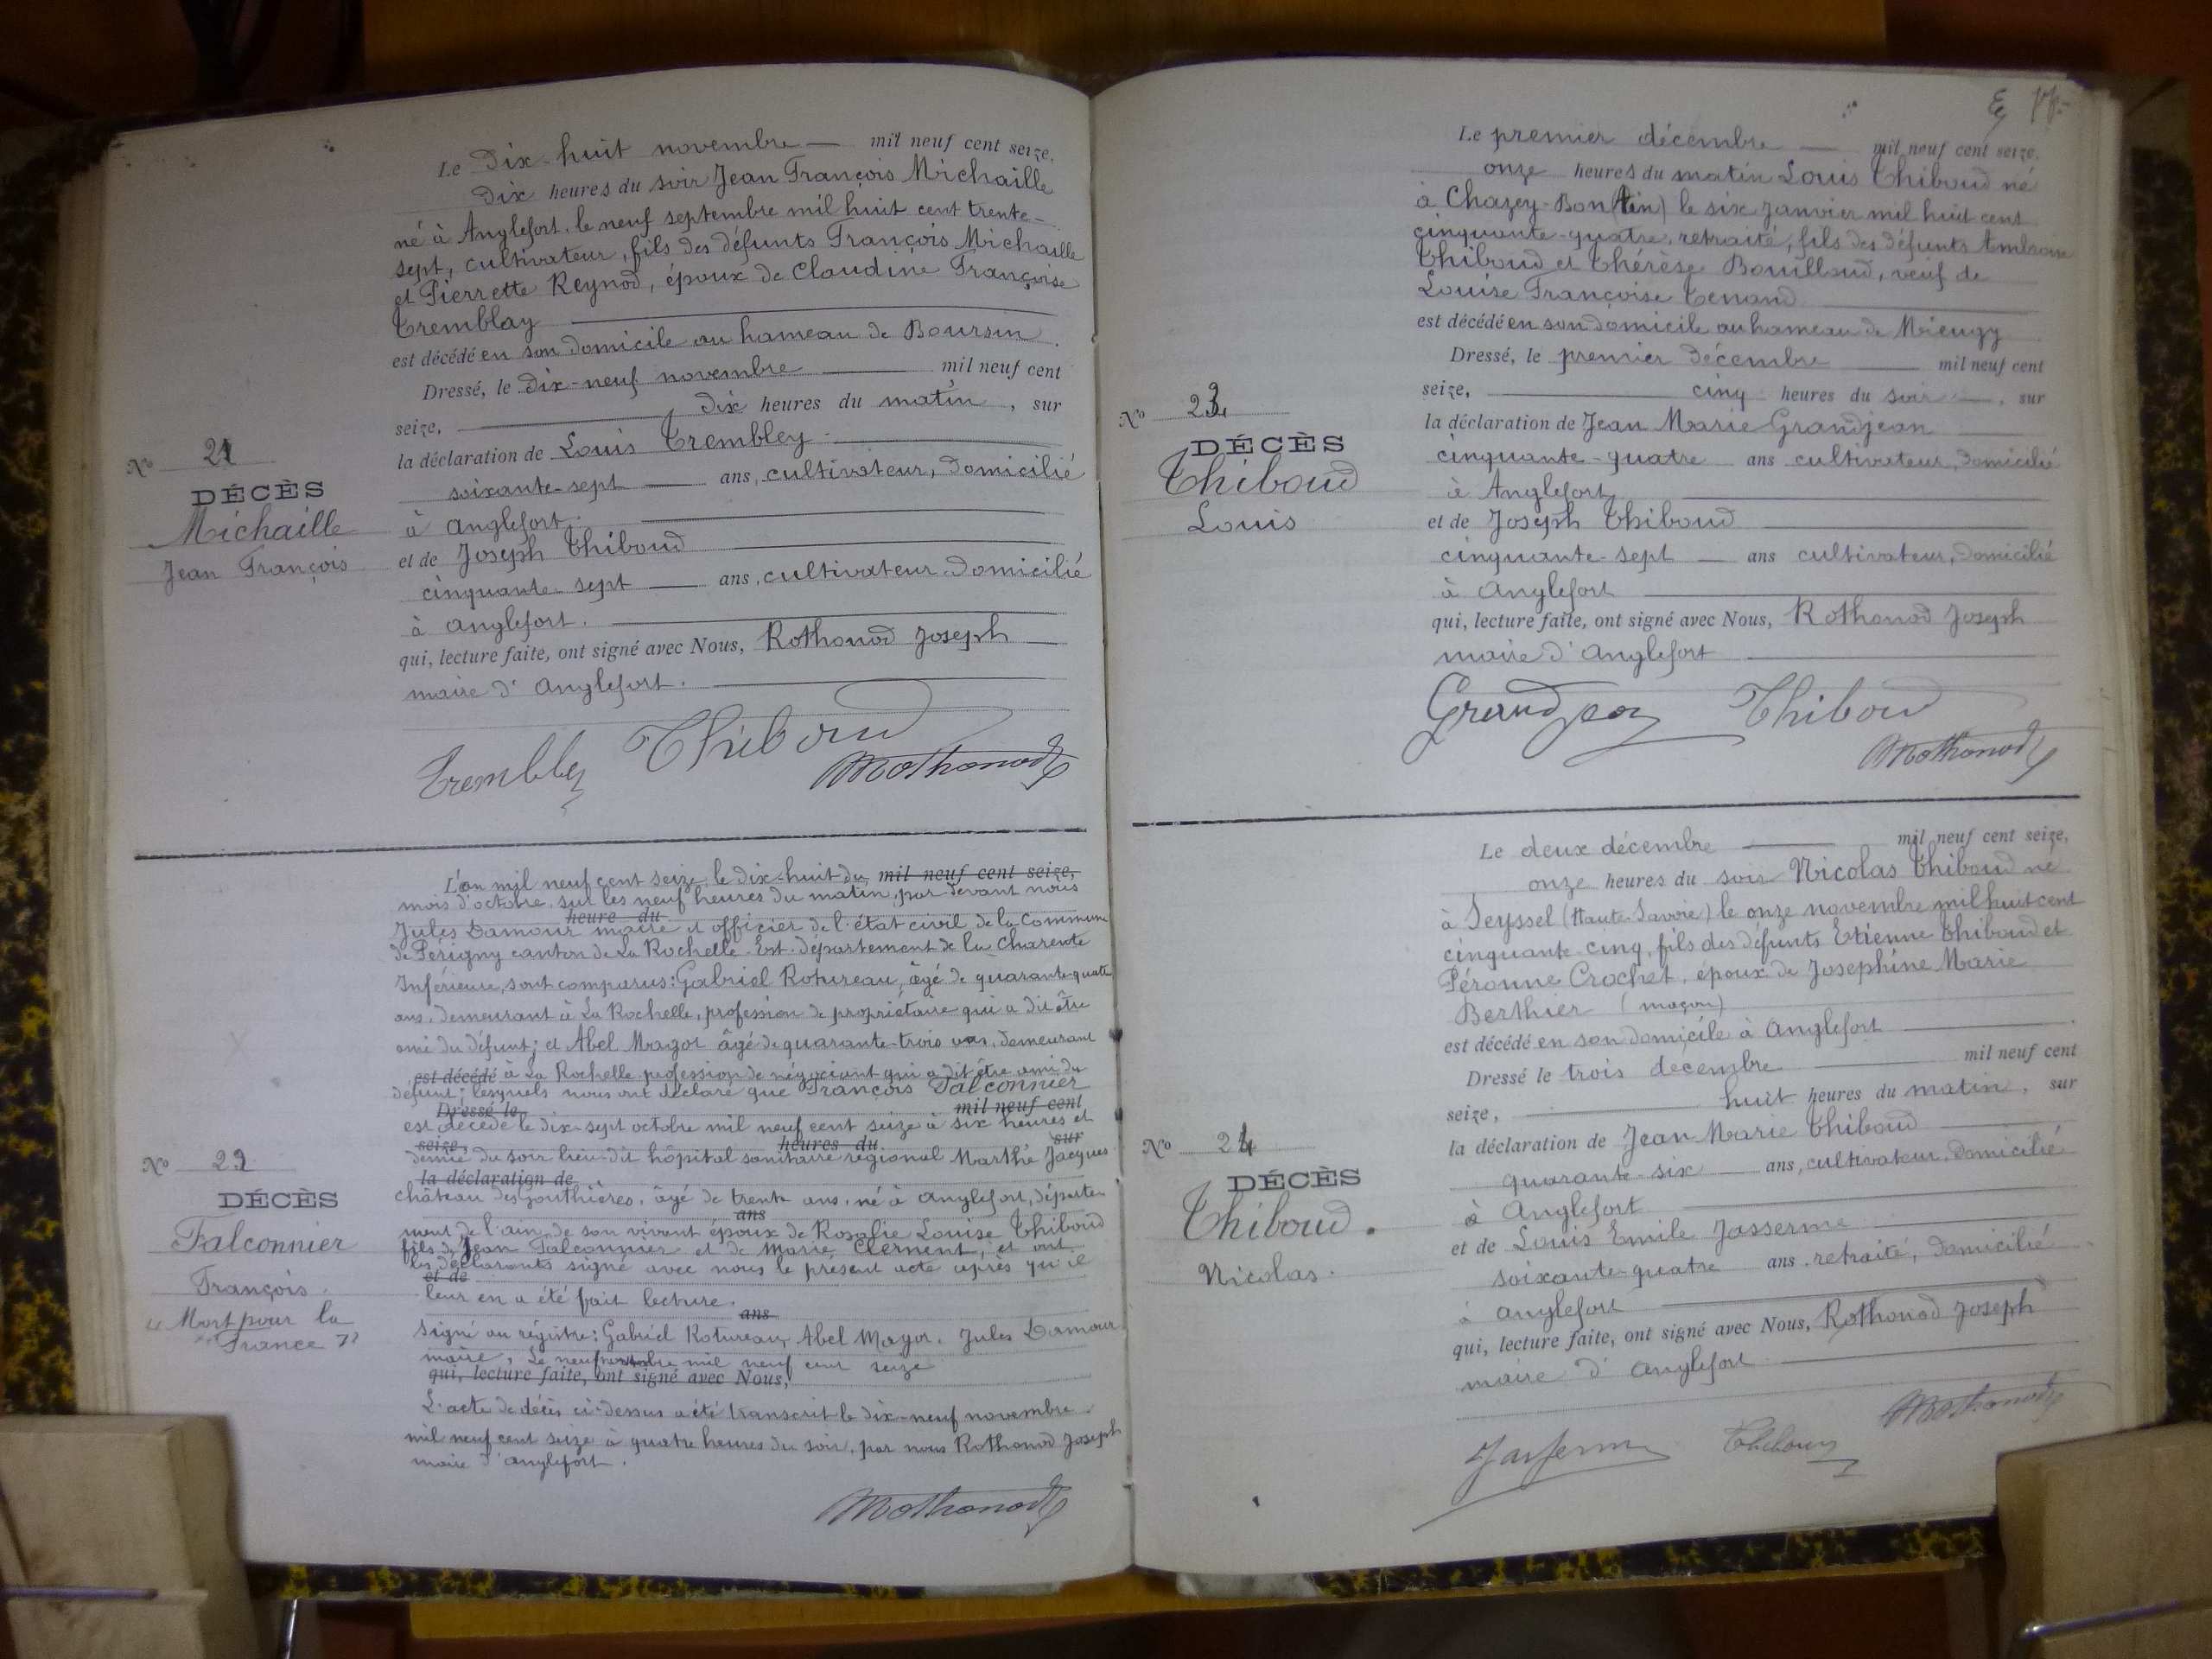 Le Dix-huit novembre — mil neuf cent seize,
Dix heures du soir Jean François Michaille
né à Anglefort, le neuf septembre mil huit cent trente-
sept, cultivateur, fils des défunts François Michaille
et Pierrette Reynod, époux de Claudine Françoise
Tremblay
est décédé en son domicile au hameau de Boursin.
Dressé, le dix-neuf novembre — mil neuf cent
seize, — dix heures du matin, sur
la déclaration de Louis Trembley
soixante-sept — ans, cultivateur, domicilié
à Anglefort.
et de Joseph Thiboud
cinquante-sept — ans, cultivateur domicilié
à Anglefort.
qui, lecture faite, ont signé avec Nous, Rothonod Joseph
maire d'Anglefort.
Trembley Thiboud
Rothonod
No 21
DÉCÈS
Michaille
Jean François
L'an mil neuf cent seize, le dix-huit du mil neuf cent seize,
mois d'octobre, sur les neuf heures du matin, par devant nous
heure du
Jules Damour maire et officier de l'état civil de la Commune
de Périgny canton de La Rochelle-Est département de la Charente
Inférieure, sont comparus: Gabriel Rotureau, âgé de quarante-quatre
ans, demeurant à La Rochelle, profession de propriétaire qui a dit être
ami du défunt; et Abel Magor âgé de quarante-trois ans, demeurant
est décédé à La Rochelle profession de négociant qui a dit être ami du
défunt; lesquels nous ont déclaré que François Falconnier
Dressé le mil neuf cent
est décédé le dix-sept octobre mil neuf cent seize à six heures et
seize, heures du sur
demie du soir lieu-dit hôpital sanitaire régional Marthe Jacques
la déclaration de
château des Gonthières, âgé de trente ans, né à Anglefort, départe-
ans
ment de l'ain, de son vivant époux de Rosalie Louise Thiboud
fils de Jean Falconnier et de Marie Clément, et ont
les déclarants signé avec nous le présent acte après qu'il
et de
leur en a été fait lecture.
ans
Signé au régistre: Gabriel Rotureau, Abel Magor, Jules Damour
maire, Le neuf novembre mil neuf cent seize
qui, lecture faite, ont signé avec Nous,
L'acte de décès ci-dessus a été transcrit le dix-neuf novembre
mil neuf cent seize à quatre heures du soir, par nous Rothonod Joseph
maire d'Anglefort.
Rothonod
No 22
DÉCÈS
Falconnier
François.
"Mort pour la
France"
Le premier décembre — mil neuf cent seize,
onze heures du matin Louis Thiboud né
à Chazey-Bon (Ain) le six janvier mil huit cent
cinquante-quatre, retraité, fils des défunts Ambroise
Thiboud et Thérèse Bouilloud, veuf de
Louise Françoise Tenand
est décédé en son domicile au hameau de Mieugy
Dressé, le premier décembre — mil neuf cent
seize, — cinq heures du soir —, sur
la déclaration de Jean Marie Grandjean
cinquante-quatre ans cultivateur, domicilié
à Anglefort
et de Joseph Thiboud
cinquante-sept — ans cultivateur, domicilié
à Anglefort
qui, lecture faite, ont signé avec Nous, Rothonod Joseph
maire d'Anglefort
Grandjean Thiboud
Rothonod
No 23
DÉCÈS
Thiboud
Louis
Le deux décembre — mil neuf cent seize,
onze heures du soir Nicolas Thiboud né
à Seyssel (Haute-Savoie) le onze novembre mil huit cent
cinquante cinq, fils des défunts Etienne Thiboud et
Péronne Crochet, époux de Josephine Marie
Berthier (maçon)
est décédé en son domicile à Anglefort
Dressé le trois decembre — mil neuf cent
seize, — huit heures du matin, sur
la déclaration de Jean Marie Thiboud
quarante-six — ans, cultivateur, domicilié
à Anglefort
et de Louis Emile Jasserme
soixante-quatre ans, retraité, domicilié
à Anglefort
qui, lecture faite, ont signé avec Nous, Rothonod Joseph
maire d'Anglefort
Rothonod
Jasserme Thiboud
No 24
DÉCÈS
Thiboud.
Nicolas.